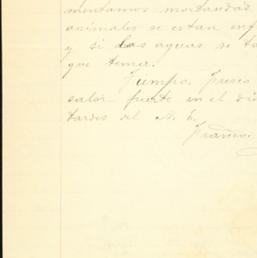 mentamos mortandad
animales se estan enf
y si las aguas se ta
que temer.
Tiempo. Fresco
calor fuerte en el dia
tardes del N. E.
Franco.